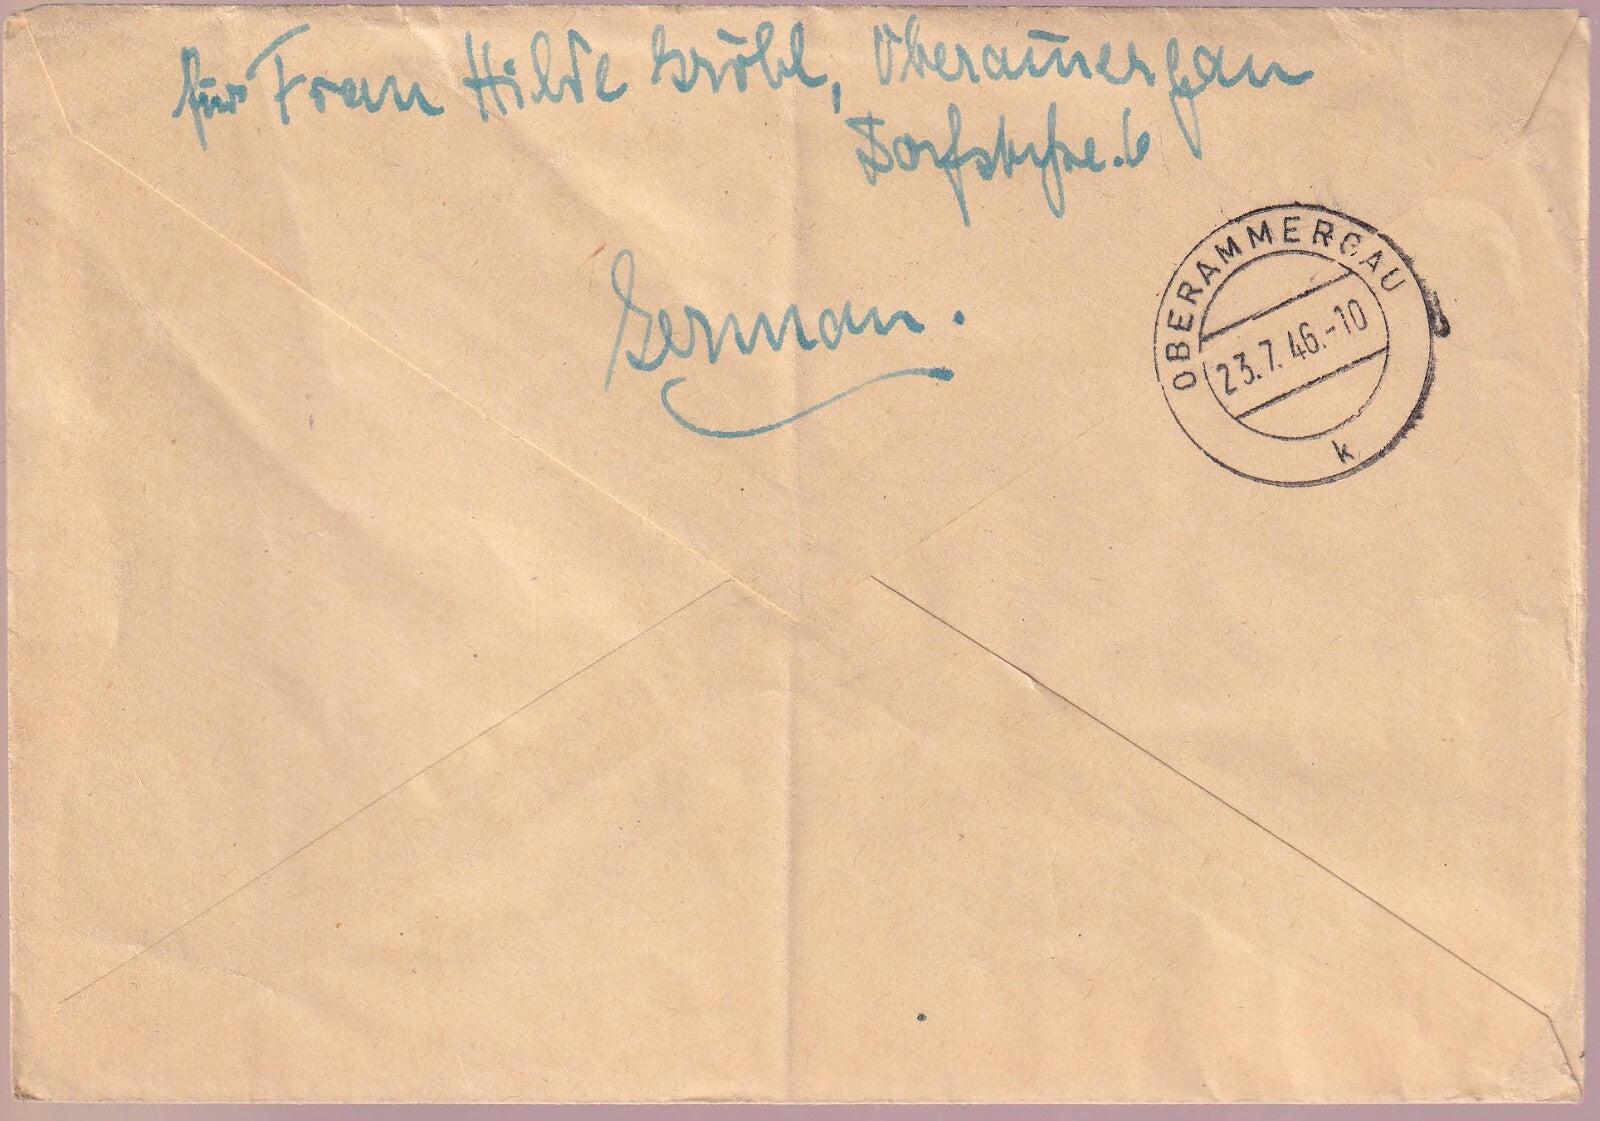 für Frau Hilde Gröbl, Oberam̄ergau
Dorfstraße. 6
German.
OBERAMMERGAU
23.7.46.-10
k